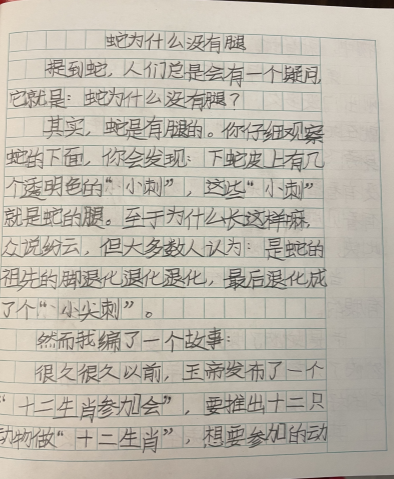 蛇为什么没有腿
提到蛇，人们总是会有一个疑问，
它就是：蛇为什么没有腿？
其实，蛇是有腿的。你仔细观察
蛇的下面，你会发现：下蛇皮上有几
个透明色的“小刺”，这些“小刺”
就是蛇的腿。至于为什么长这样嘛，
众说纷云，但大多数人认为：是蛇的
祖先的脚退化退化退化，最后退化成
了个“小尖刺”。
然而我编了一个故事：
很久很久以前，玉帝发布了一个
“十二生肖参加会”，要推出十二只
动物做“十二生肖”，想要参加的动